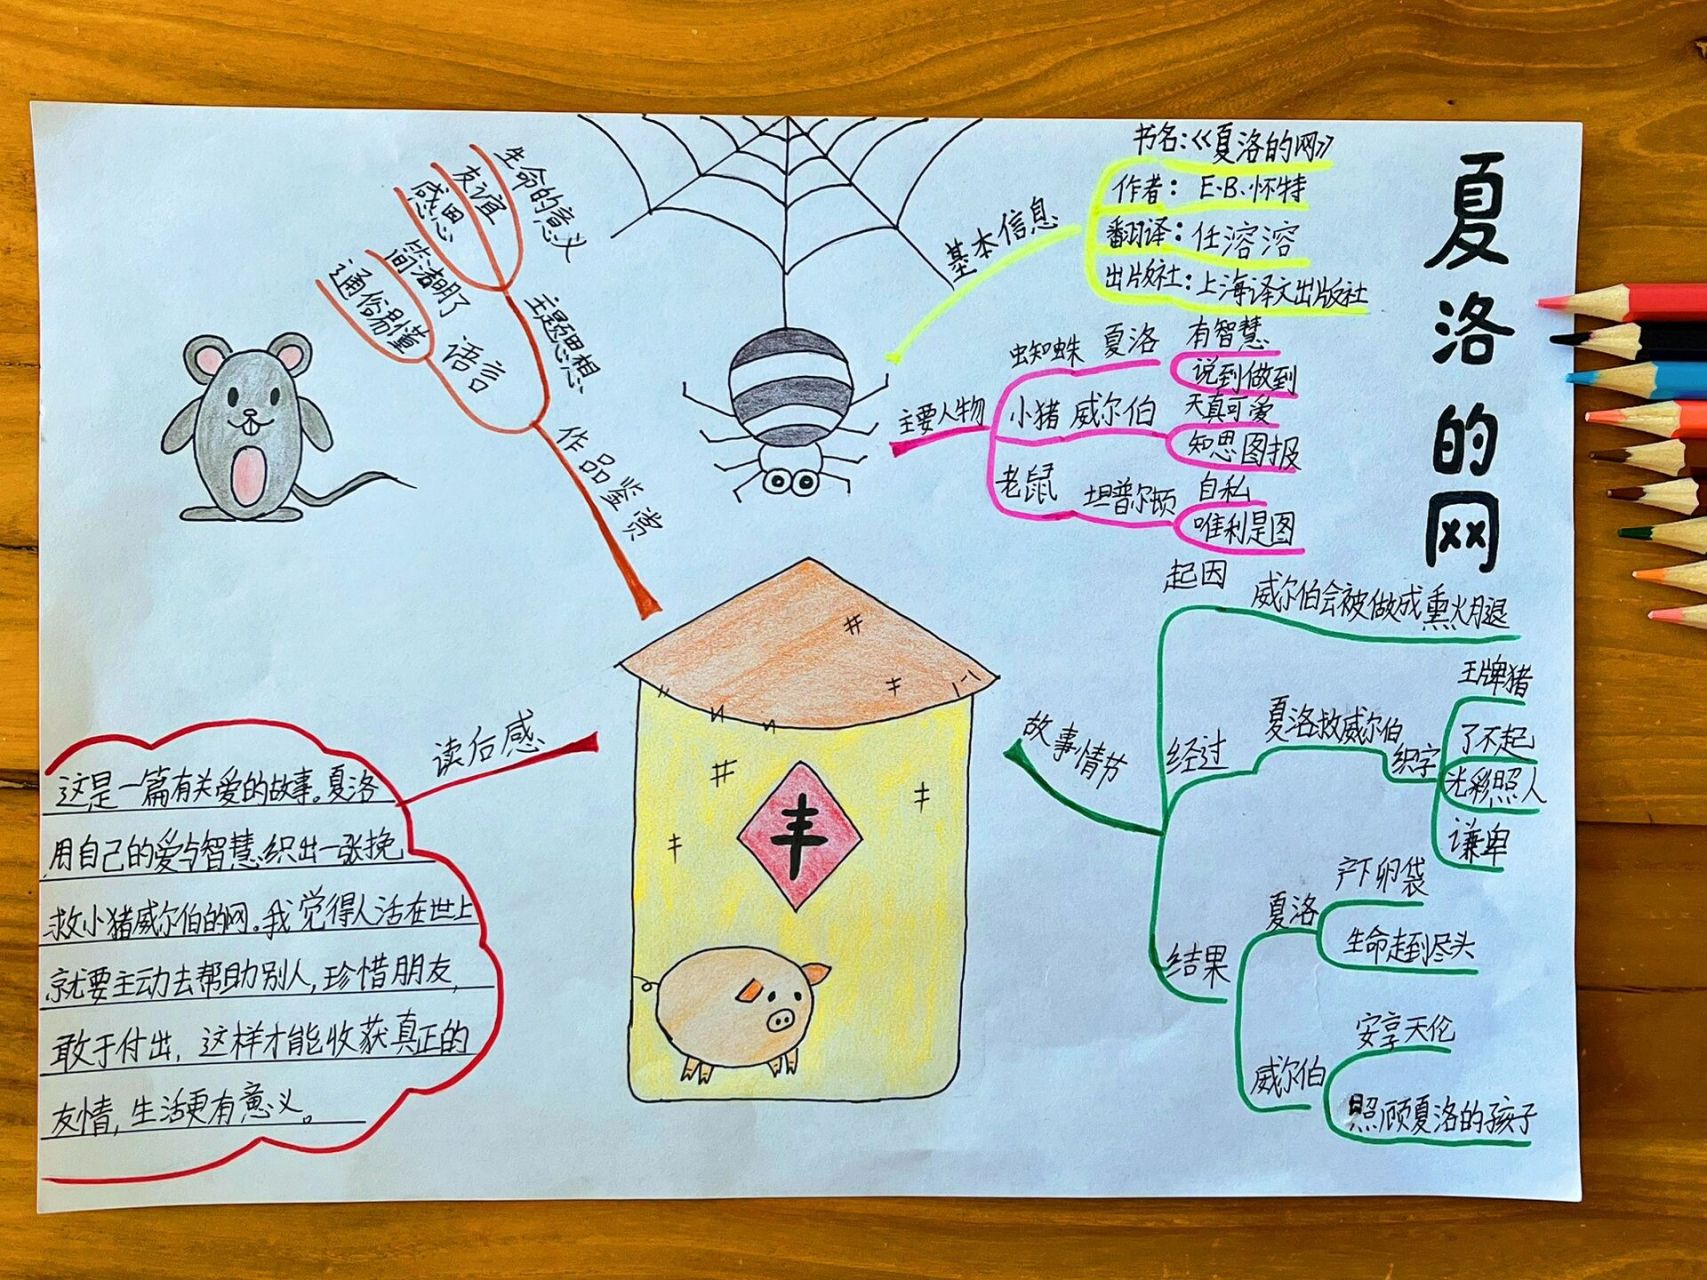 夏洛的网
基本信息
书名:《夏洛的网》
作者: E·B·怀特
翻译: 任溶溶
出版社: 上海译文出版社
主要人物
蜘蛛 夏洛
有智慧
说到做到
小猪 威尔伯
天真可爱
知恩图报
老鼠 坦普尔顿
自私
唯利是图
故事情节
起因
威尔伯会被做成熏火腿
经过
夏洛救威尔伯
织字
王牌猪
了不起
光彩照人
谦卑
结果
夏洛
产下卵袋
生命走到尽头
威尔伯
安享天伦
照顾夏洛的孩子
作品鉴赏
主题思想
生命的意义
友谊
感恩
语言
简洁明了
通俗易懂
读后感
这是一篇有关爱的故事。夏洛
用自己的爱与智慧织出一张挽
救小猪威尔伯的网。我觉得人活在世上
就要主动去帮助别人,珍惜朋友,
敢于付出, 这样才能收获真正的
友情, 生活更有意义。
丰